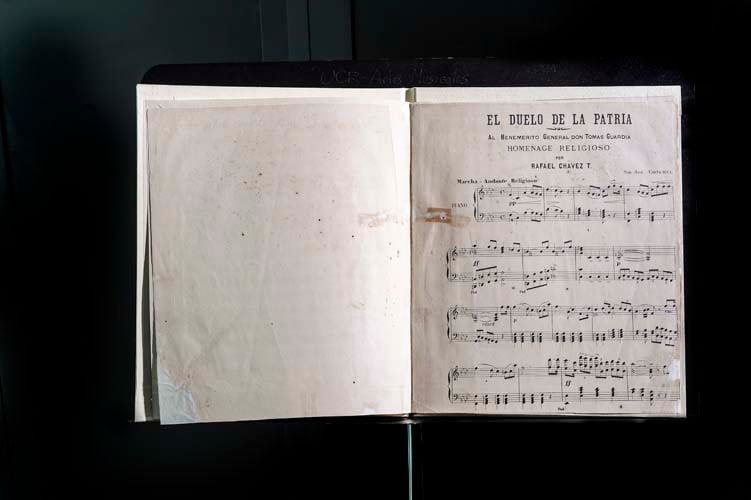 UCR-Artes Musicales
EL DUELO DE LA PATRIA
AL BENEMERITO GENERAL DON TOMAS GUARDIA
HOMENAGE RELIGIOSO
POR
RAFAEL CHAVEZ T.
San José, COSTA RICA.
Marcha - Andante Religioso
PIANO
pp
ff
p
Ped
Ped
p
ff
Ped